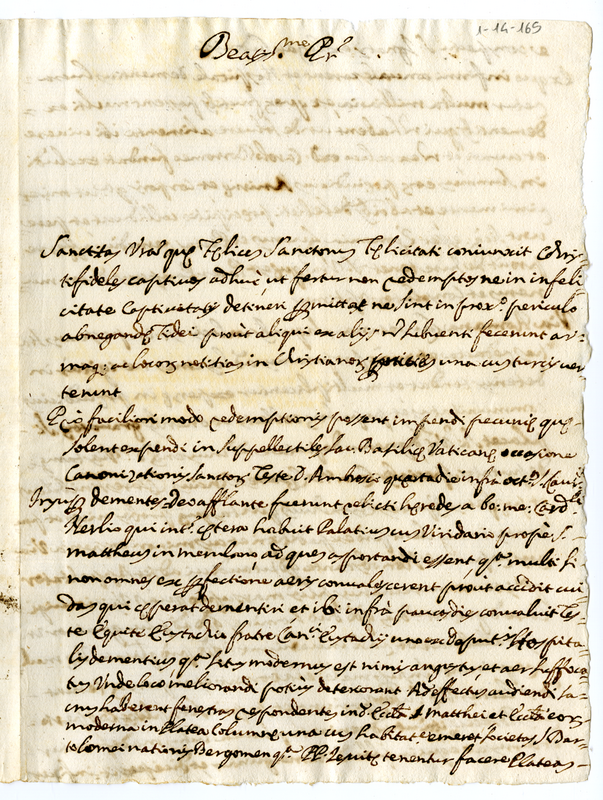 1-14-165
Beatiss.me Pr.
Sanctitas Vra que felices Sanctorum felicitati coniunxit Chri-
stifideles captivos adhuc ut fertur non redemptos ne in infeli-
citate Captivitatis detineri permittat ne sint in prox.o periculo
abnegandi fidei prout aliqui ex alijs fecerunt ar-
maq; ac locorum notitias in Christianos una cum turcis ver-
terunt
Pro faciliori modo redemptionis possent impendi pecunie que
solent expendi in suppellectiles Sac. Basilice Vaticane occasione
Canonizationis Sanctorum Teste D. Ambrosio quarta die infra oct.
Insuper dementes Deo afflante fuerunt relicti heredes a bo: me: Card.li
Nerlio qui int. cetera habuit Palatium cum Viridario prope S.
Mattheum in merulano ad quem asportandi essent q.a multi si
non omnes ex perfectione aeris convalescerent prout accidit cui-
dam qui ceperat dementiri et ibi infra paucos dies convaluit Tes-
te Equite Eustachio fratre Can.ci Eustachij uno ex deput. Hospita-
lis dementium q.a situs modernus est nimis angustus et aer suffoca-
tus Unde loco meliorandi potius deteriorant Ad effectum audiendi sa-
crum haberent fenestras respondentes in d. Eccl.a S. Matthei et Eccl.a eorum
moderna in Platea Columne una cum habitat.e emeret societas S. Bar-
tolomei nationis Bergomen q.a PP. Jesuite tenentur facere Plateam